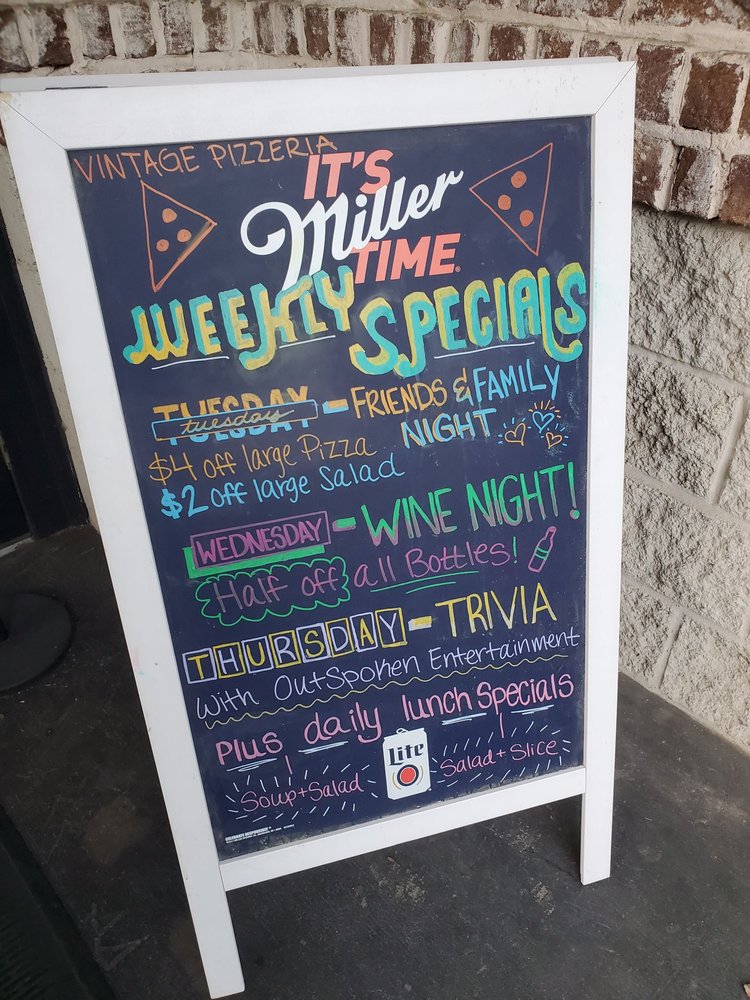 VINTAGE PIZZERIA
IT'S
Miller
TIME
WEEKLY SPECIALS
TUESDAY - FRIENDS & FAMILY
tuesdays
NIGHT
$4 off large Pizza
$2 off large Salad
WEDNESDAY - WINE NIGHT!
Half off all Bottles!
THURSDAY - TRIVIA
with OutSpoken Entertainment
Plus daily lunch Specials
Lite
Soup+Salad
Salad+Slice
CELEBRATE RESPONSIBLY.